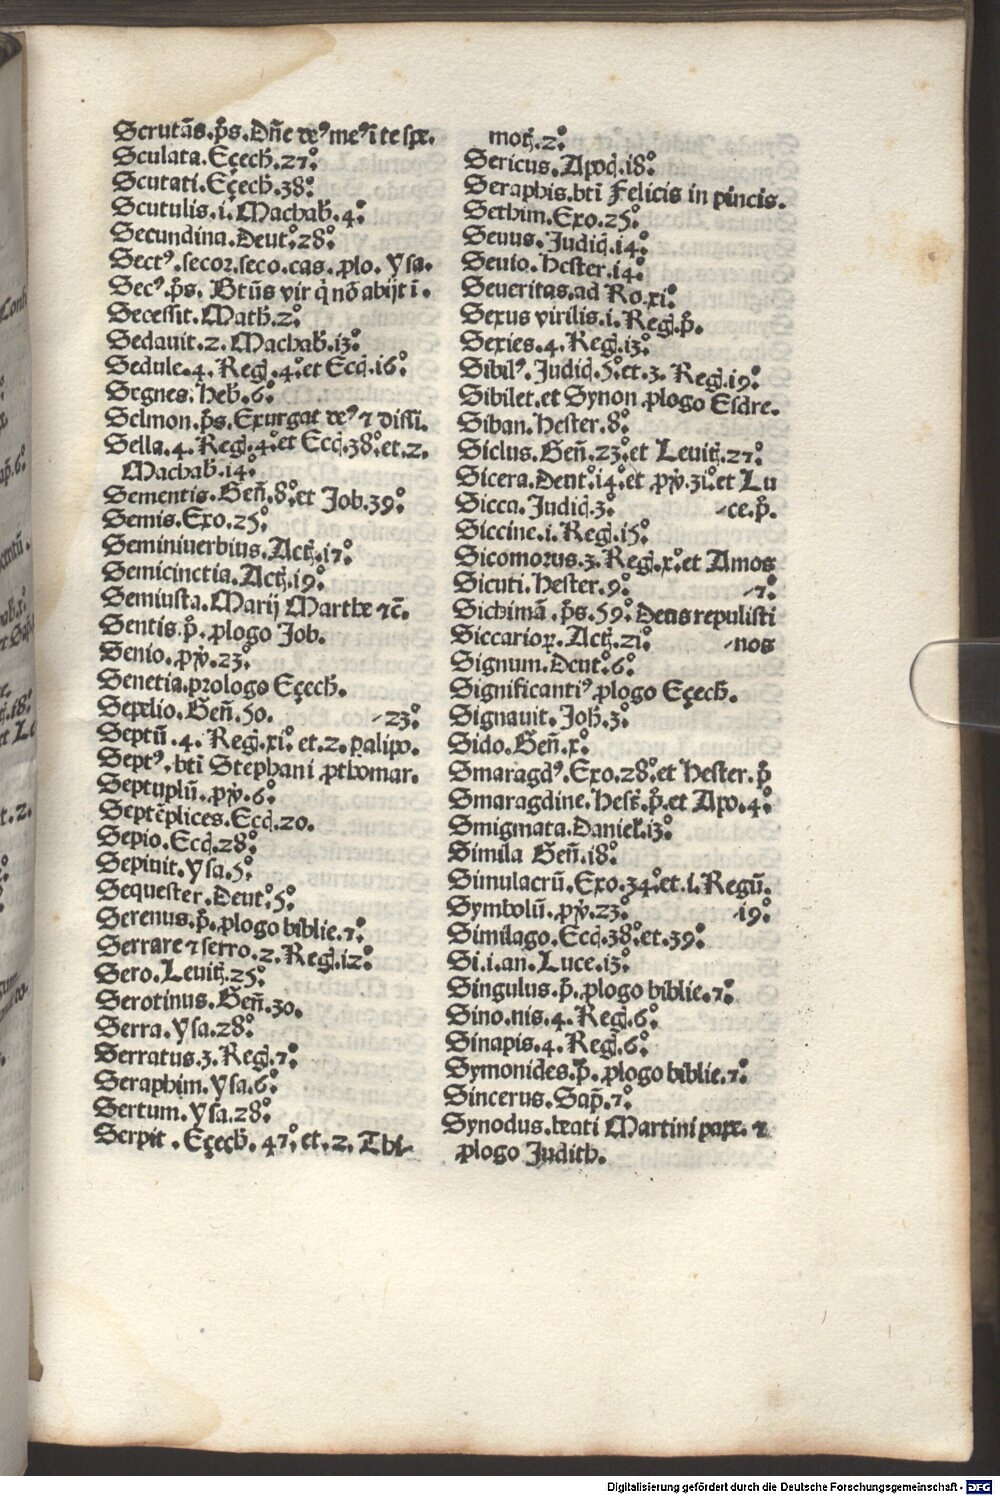 Scrutās.ṗs.Dn̄e de⁹ me⁹ ī te spe.
Sculata.Eçech̄.27°
Scutati.Eçech̄.38°
Scutulis.i.Machab̄.4°
Secundina.Deut°.28°
Sect⁹.secor.seco.cas.ꝓlo.Ysa.
Sec⁹.ṗs.Bt̄us vir q̇ nō abijt ī.
Secessit.Math̄.2°
Sedauit.2.Machab̄.13°
Sedule.4.Reḡ.4°.et Ecc̄.16°
Segnes.Heb̄.6°
Selmon.ṗs.Exurgat de⁹ ⁊ dissi.
Sella.4.Reḡ.4°.et Ecc̄.38°.et.2.
Machab̄.14°
Sementis.Gen̄.8°.et Job.39°
Semis.Exo.25°
Seminiuerbius.Act̄.17°
Semicinctia.Act̄.19°
Semiusta.Marij Marthe ⁊c̄.
Sentis.ṗ.ꝓlogo Job.
Senio.ꝓv̇.23°
Senetia.prologo Eçech̄.
Sepelio.Gen̄.50. -23°
Septū.4.Reḡ.xi°.et.2.ꝑalipo.
Sept⁹.bt̄i Stephani ꝓthomar.
Septuplū.ꝓv̇.6°
Septēplices.Ecc̄.20.
Sepio.Ecc̄.28°
Sepiuit.Ysa.5°
Sequester.Deut°.5°
Serenus.ṗ.ꝓlogo biblie.7°
Serrare ⁊ serro.2.Reḡ.12°
Sero.Leuit̄.25°
Serotinus.Gen̄.30.
Serra.Ysa.28°
Serratus.3.Reḡ.7°
Seraphim.Ysa.6°
Sertum.Ysa.28°
Serpit.Eçech̄.47°.et.2.Thi-
mot̄.2°
Sericus.Apoc̄.18°
Seraphis.bt̄i Felicis in pincis.
Sethim.Exo.25°
Seuus.Judic̄.14°
Seuio.Hester.14°
Seueritas.ad Ro.xi°
Sexus virilis.i.Reḡ.ṗ.
Sexies.4.Reḡ.13°
Sibil⁹.Judic̄.5°.et.3.Reḡ.19°
Sibilet.et Synon ꝓlogo Esdre.
Siban.Hester.8°
Siclus.Gen̄.23°.et Leuit̄.27°
Sicera.Deut°.14°.et ꝓv̇.31°.et Lu
Sicca.Judic̄.3° -ce.ṗ.
Siccine.i.Reḡ.15°
Sicomorus.3.Reḡ.x°.et Amos
Sicuti.Hester.9° -7°
Sichimā.ṗs.59°.Deus repulisti
Siccarioꝝ.Act̄.21° -nos
Signum.Deut°.6°
Significanti⁹.ꝓlogo Eçech̄.
Signauit.Joh̄.3°
Sido.Gen̄.x°
Smaragd⁹.Exo.28°.et Hester.ṗ
Smaragdine.Hest̄.ṗ.et Apo.4°
Smigmata.Daniel̄.13°
Simila Gen̄.18°
Simulacrū.Exo.34°.et.i.Regū.
Symbolū.ꝓv̇.23° -19°
Similago.Ecc̄.38°.et.39°
Si.i.an.Luce.13°
Singulus.ṗ.ꝓlogo biblie.7°
Sino.nis.4.Reḡ.6°
Sinapis.4.Reḡ.6°
Symonides.ṗ.ꝓlogo biblie.7°
Sincerus.Sap̄.7°
Synodus.beati Martini pape.⁊
ꝓlogo Judith.
Digitalisierung gefördert durch die Deutsche Forschungsgemeinschaft - DFG